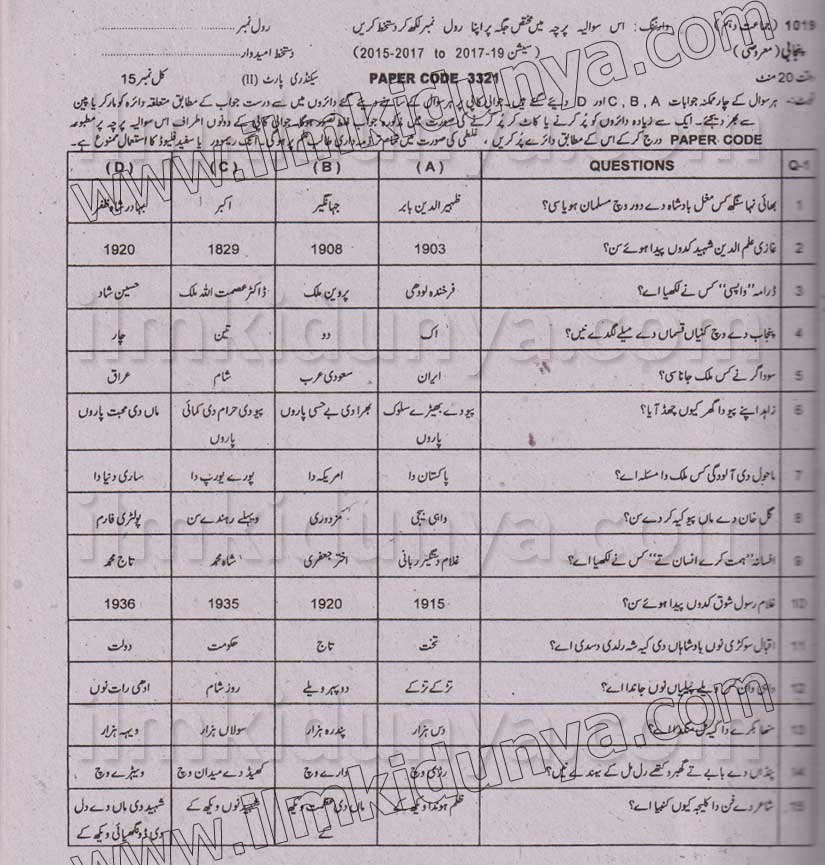 1019 (جماعت دہم) وارننگ: اس سوالیہ پرچہ میں مختص جگہ پر اپنا رول نمبر لکھ کر دستخط کریں رول نمبر
پنجابی (معروضی) (سیشن 19-2017 to 2015-2017) دستخط امیدوار
وقت 20 منٹ PAPER CODE 3321 سیکنڈری پارٹ (II) کل نمبر 15
نوٹ ہر سوال کے چار ممکنہ جوابات A, B, C اور D دیئے گئے ہیں۔ جوابی کاپی پر ہر سوال کے سامنے دیئے گئے دائروں میں سے درست جواب کے مطابق متعلقہ دائرہ کو مارکر یا پین
سے بھر دیجئے۔ ایک سے زیادہ دائروں کو پُر کرنے یا کاٹ کر پُر کرنے کی صورت میں مذکورہ جواب غلط تصور ہوگا۔ جوابی کاپی کے دونوں اطراف اس سوالیہ پرچہ پر مطبوعہ
PAPER CODE درج کر کے اس کے مطابق دائرے پُر کریں، غلطی کی صورت میں تمام تر ذمہ داری طالب علم پر ہوگی۔ انک ریموور یا سفید فلیوڈ کا استعمال ممنوع ہے۔
Q-1 QUESTIONS (A) (B) (C) (D)
1 بھائی نہا سنگھ کس مغل بادشاہ دے دور وچ مسلمان ہویا سی؟ ظہیر الدین بابر جہانگیر اکبر بہادر شاہ ظفر
2 غازی علم الدین شہید کدوں پیدا ہوئے سن؟ 1903 1908 1829 1920
3 ڈرامہ "واپسی" کس نے لکھیا اے؟ فرخندہ لودھی پروین ملک ڈاکٹر عصمت اللہ ملک حسین شاد
4 پنجاب دے وچ کنیاں قسماں دے میلے لگدے نیں؟ اک دو تین چار
5 سوداگر نے کس ملک جانا سی؟ ایران سعودی عرب شام عراق
6 زاہد اپنے پیو دا گھر کیوں چھڈ آیا؟ پیو دے بھیڑے سلوک پاروں بھرا دی بے حسی پاروں پیو دی حرام دی کمائی پاروں ماں دی محبت پاروں
7 ماحول دی آلودگی کس ملک دا مسئلہ اے؟ پاکستان دا امریکہ دا پورے یورپ دا ساری دنیا دا
8 گل خان دے ماں پیو کیہ کردے سن؟ واہی بیجی مزدوری ویہلے رہندے سن پولٹری فارم
9 افسانہ "ہمت کرے انسان تے" کس نے لکھیا اے؟ غلام دستگیر ربانی اختر جعفری شاہ محمد تاج محمد
10 غلام رسول شوق کدوں پیدا ہوئے سن؟ 1915 1920 1935 1936
11 اقبال سوکڑی نوں بادشاہاں دی کیہ شہ رلدی دسدی اے؟ تخت تاج حکومت دولت
12 واہی وان کس ویلے پیلیاں نوں جاندا اے؟ تڑکے تڑکے دوپہر ویلے روز شام ادھی رات نوں
13 بکرے دا کیہ مل منگدا اے؟ دس ہزار پندرہ ہزار سولاں ہزار ویہہ ہزار
14 پنڈاں دے بابے تے گھبرو کتھے رل مل کے بہندے نیں؟ رڑی وچ دارے وچ کھیڈ دے میدان وچ ویہڑے وچ
15 شاعر دے فن دا کلیجہ کیوں کنبھیا اے؟ ظلم ہوندا ویکھ کے ماں دی عظمت ویکھ کے شہید نوں ویکھ کے شہید دی ماں دے دل دی ڈونگھیائی ویکھ کے
www.ilmkidunya.com
ilmkidunya.com
ilmkidunya.com
ilmkidunya.com
ilmkidunya.com
www.ilmkidunya.com